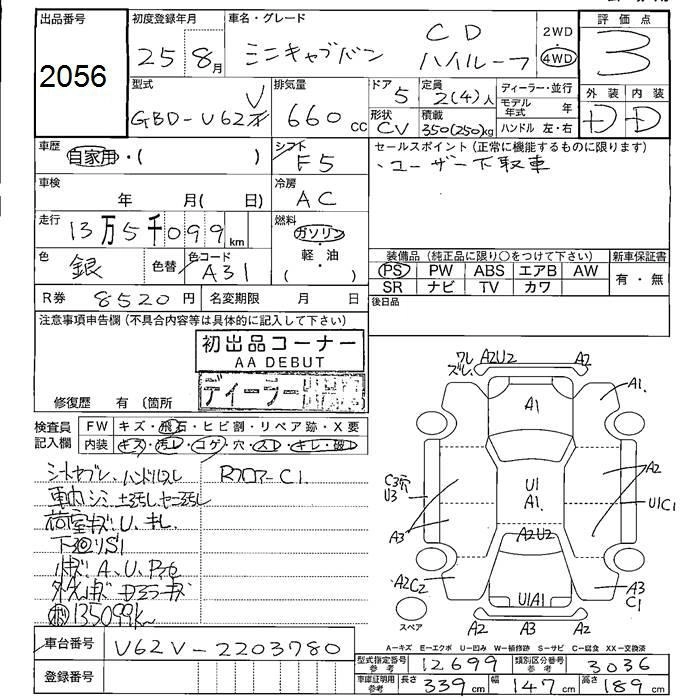 出品番号 初度登録年月 車名・グレード 評価点
2056
25年8月 ミニキャブバン CD ハイルーフ 2WD 4WD 3
型式 排気量 ドア 定員 ディーラー・並行 外装 内装
GBD-U62V 660cc 5 2(4)人 モデル年式 年 D D
形状 積載
CV 350(250)kg ハンドル 左・右
車歴 シフト セールスポイント(正常に機能するものに限ります)
自家用・( ) F5 ・ユーザー下取車
車検 冷房
年 月( 日) AC
走行 燃料
13万5千099km ガソリン
色 色替 色コード 軽・油
銀 A31 ( )
装備品(純正品に限り○をつけて下さい) 新車保証書
PS PW ABS エアB AW 有・無
SR ナビ TV カワ
R券 8520円 名変期限 月 日 後日品
注意事項申告欄(不具合内容等は具体的に記入して下さい)
初出品コーナー
AA DEBUT
ディーラー
修復歴 有(箇所
検査員記入欄 FW キズ・飛石・ヒビ割・リペア跡・X要
内装 キズ・汚レ・コゲ・穴・スレ・キレ・破レ
シートヤブレ、ハンドルスレ RフロアーC1
車内シミ
荷室キズ、U、キレ
A、U、
135099k~
ワレ A2U2 A2
ズレ
A1 A1
A2
C3穴 U1
U3 A1 U1C1
A3 A2U2 A2
A2C2 A3
U1A1 C1
スペア A2 A3 A2
A-キズ E-エクボ U-凹み W-補修跡 S-サビ C-腐食 XX-交換済
車台番号 U62V-2203780
登録番号
型式指定番号 参考 12699 類別区分番号 参考 3036
車庫証明用 参考 長さ 339cm 幅 147cm 高さ 189cm